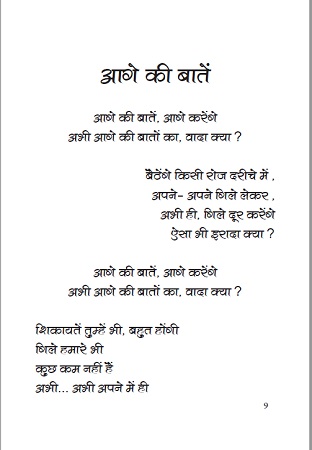 आगे की बातें
आगे की बातें, आगे करेंगे
अभी आगे की बातों का, वादा क्या ?
बैठेंगे किसी रोज दरीचे में ,
अपने- अपने गिले लेकर ,
अभी ही, गिले दूर करेंगे
ऐसा भी इरादा क्या ?
आगे की बातें, आगे करेंगे
अभी आगे की बातों का, वादा क्या ?
शिकायतें तुम्हें भी, बहुत होंगी
गिले हमारे भी
कुछ कम नहीं हैं
अभी... अभी अपने में ही
9